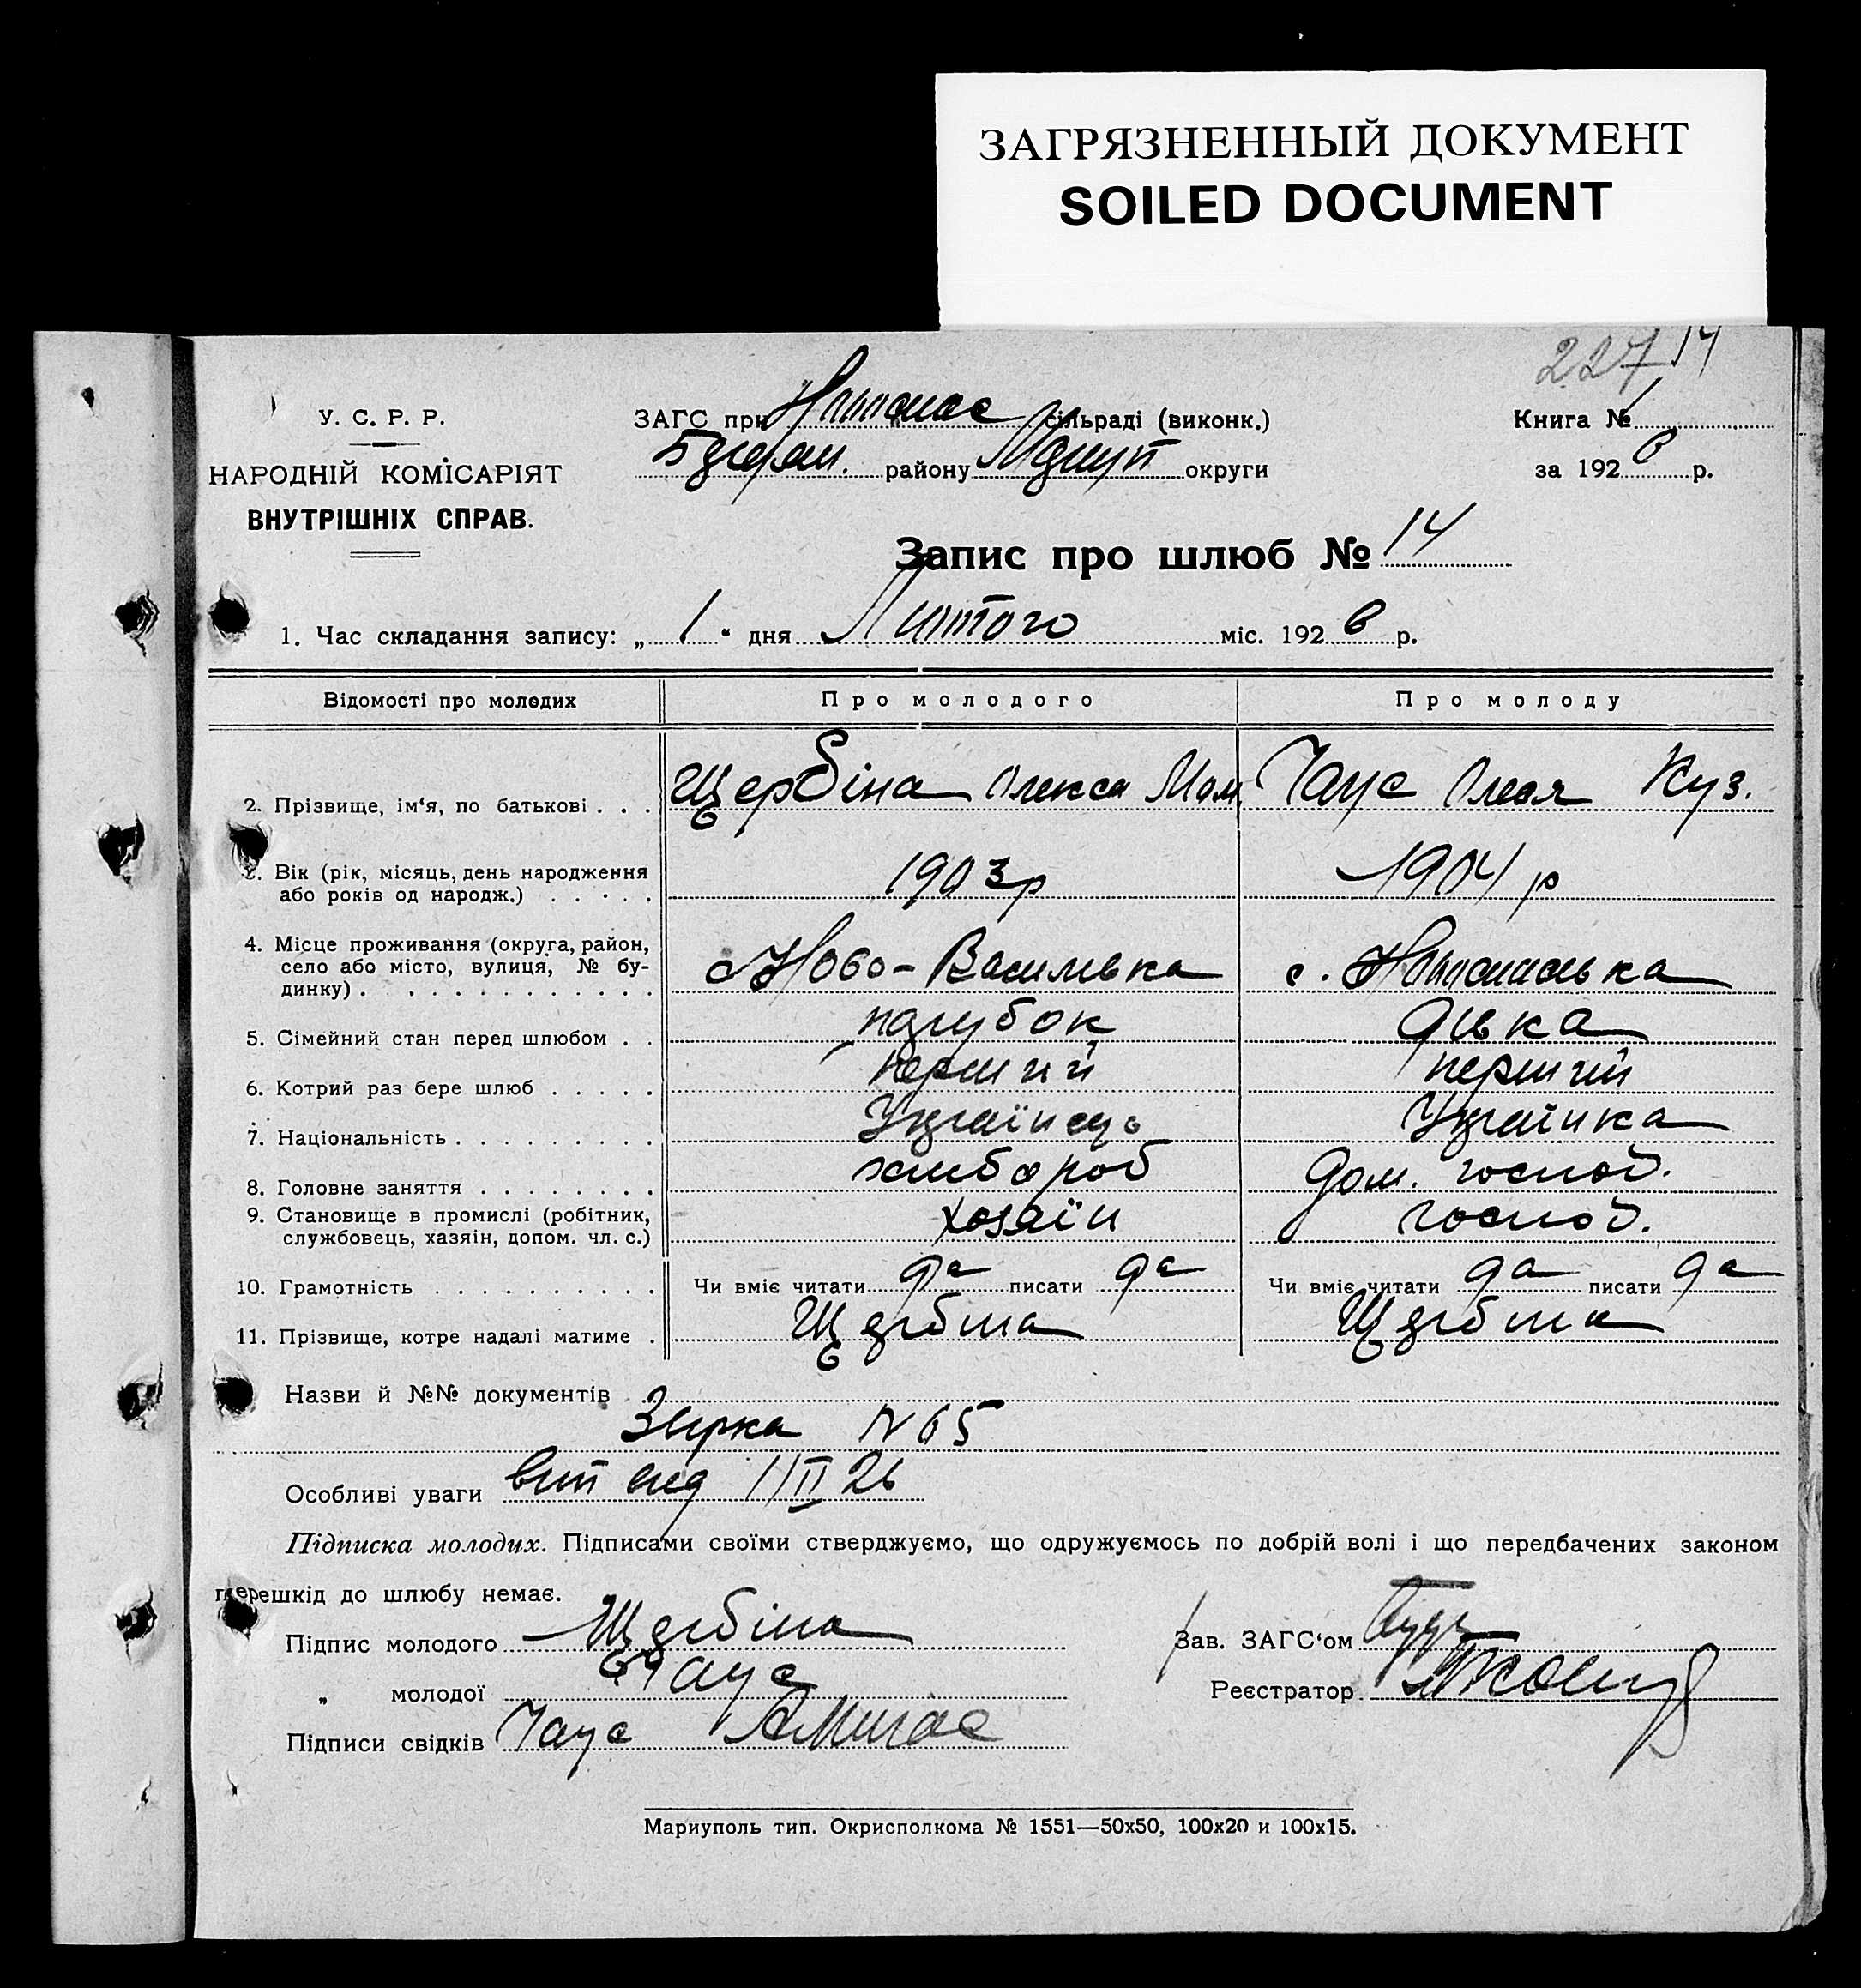 ЗАГРЯЗНЕННЫЙ ДОКУМЕНТ
SOILED DOCUMENT
227 14
У. С. Р. Р.
НАРОДНІЙ КОМІСАРІЯТ
ВНУТРІШНІХ СПРАВ.
ЗАГС при сільраді (виконк.)
району округи
Книга № 1
за 1926 р.
Запис про шлюб № 14
1. Час складання запису: „ 1 “ дня Лютого міс. 1926 р.
Відомості про молодих Про молодого Про молоду
2. Прізвище, ім‘я, по батькові . . . Щербіна Олекса Чаус Олеся Куз.
3. Вік (рік, місяць, день народження
або років од народж.) . . . . . 1903 р 1904 р
4. Місце проживання (округа, район,
село або місто, вулиця, № бу-
динку) . . . . . . . . . . . . с Ново-Василівка с.
5. Сімейний стан перед шлюбом . . парубок дівка
6. Котрий раз бере шлюб . . . . . перший перший
7. Національність . . . . . . . . . Українець Українка
8. Головне заняття . . . . . . . . хлібороб дом. господ.
9. Становище в промислі (робітник,
службовець, хазяін, допом. чл. с.) хозяїн господ.
10. Грамотність . . . . . . . . . . Чи вміє читати да писати да Чи вміє читати да писати да
11. Прізвище, котре надалі матиме . Щербина Щербина
Назви й №№ документів
N 65
Особливі уваги вип вид 1/II 26
Підписка молодих. Підписами своїми стверджуємо, що одружуємось по добрій волі і що передбачених законом
перешкід до шлюбу немає.
Підпис молодого Щербіна
„ молодої Чаус
Підписи свідків Чаус
Зав. ЗАГС‘ом
Реєстратор
Мариуполь тип. Окрисполкома № 1551—50х50, 100х20 и 100х15.